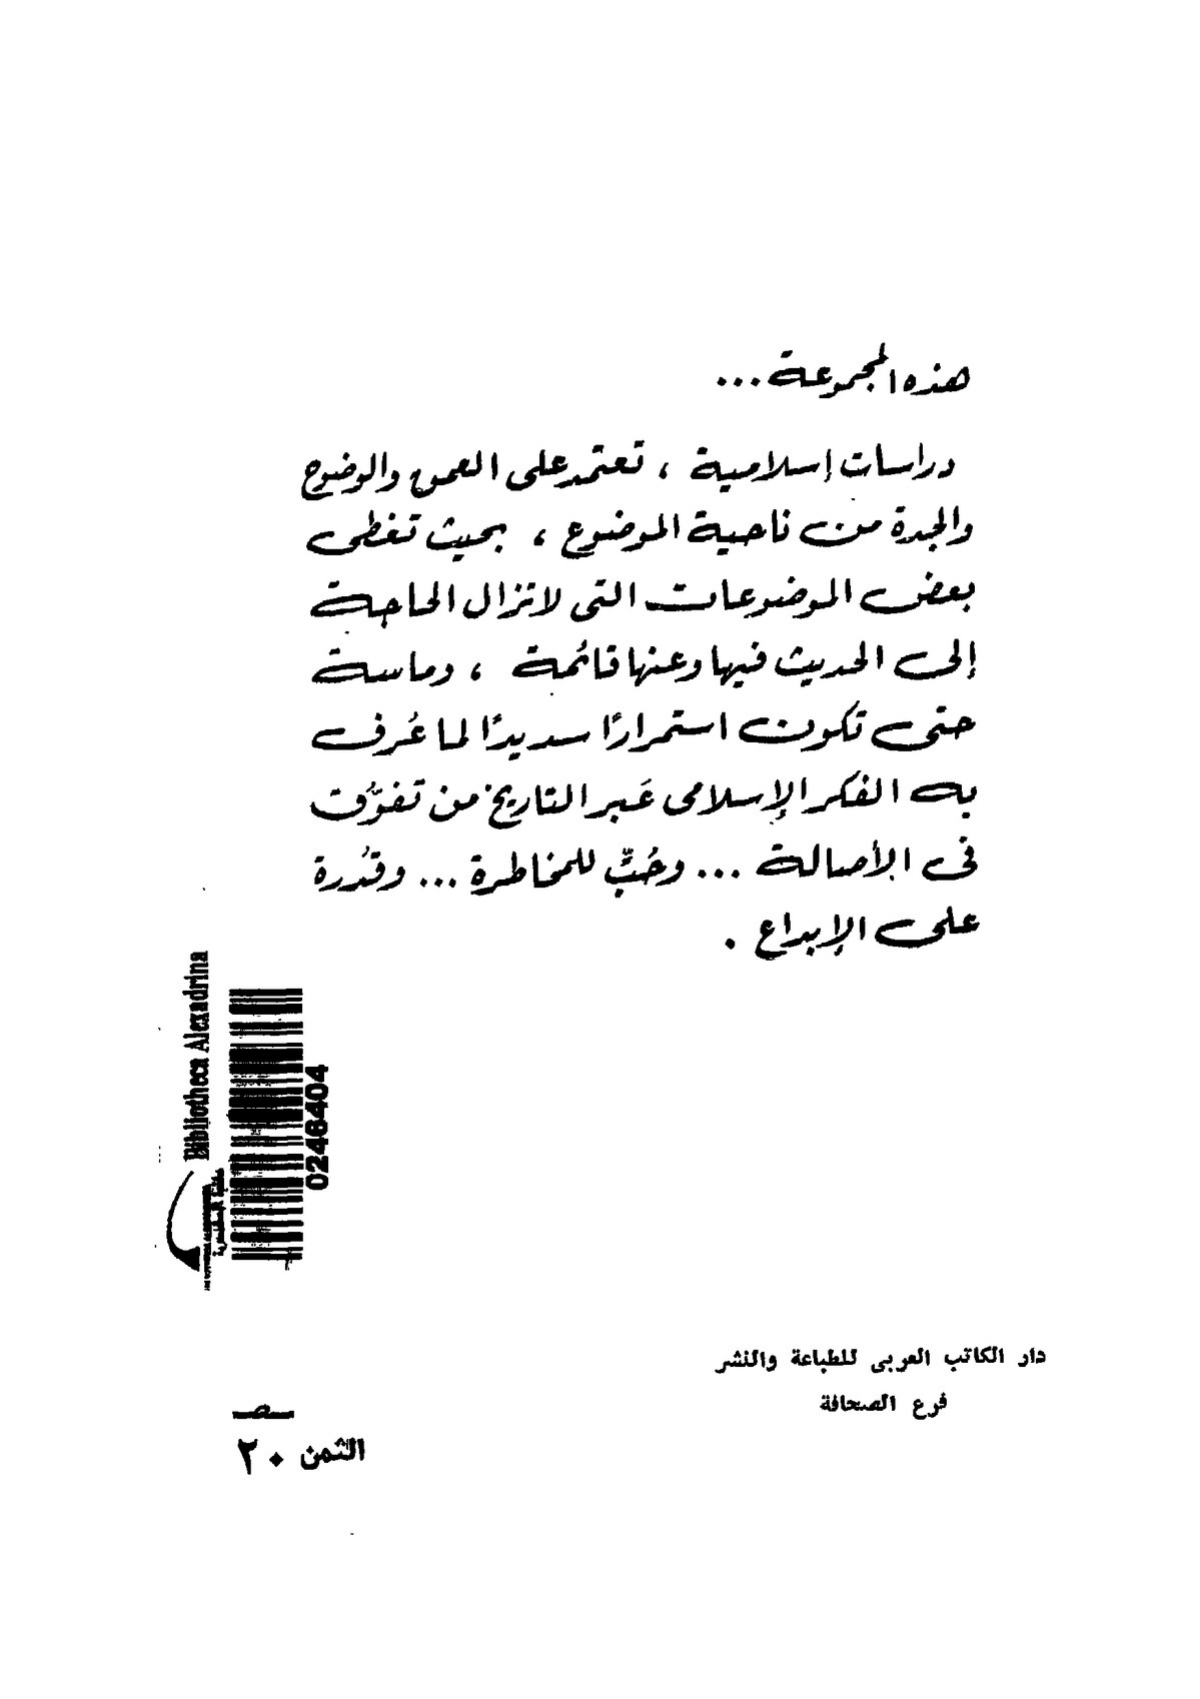 هذه المجموعة ...
دراسات إسلامية ، تعتمد على العمق والوضوح
والجدة من ناحية الموضوع ، بحيث تغطى
بعض الموضوعات التى لا تزال الحاجة
إلى الحديث فيها وعنها قائمة ، وماسة
حتى تكون استمرارًا سديدًا لما عُرف
به الفكر الإسلامى عَبر التاريخ من تفوُّق
فى الأصالة ... وحُبٍّ للمخاطرة ... وقُدرة
على الإبداع .
Bibliotheca Alexadrina
0246404
دار الكاتب العربى للطباعة والنشر
فرع الصحافة
الثمن ٢٠